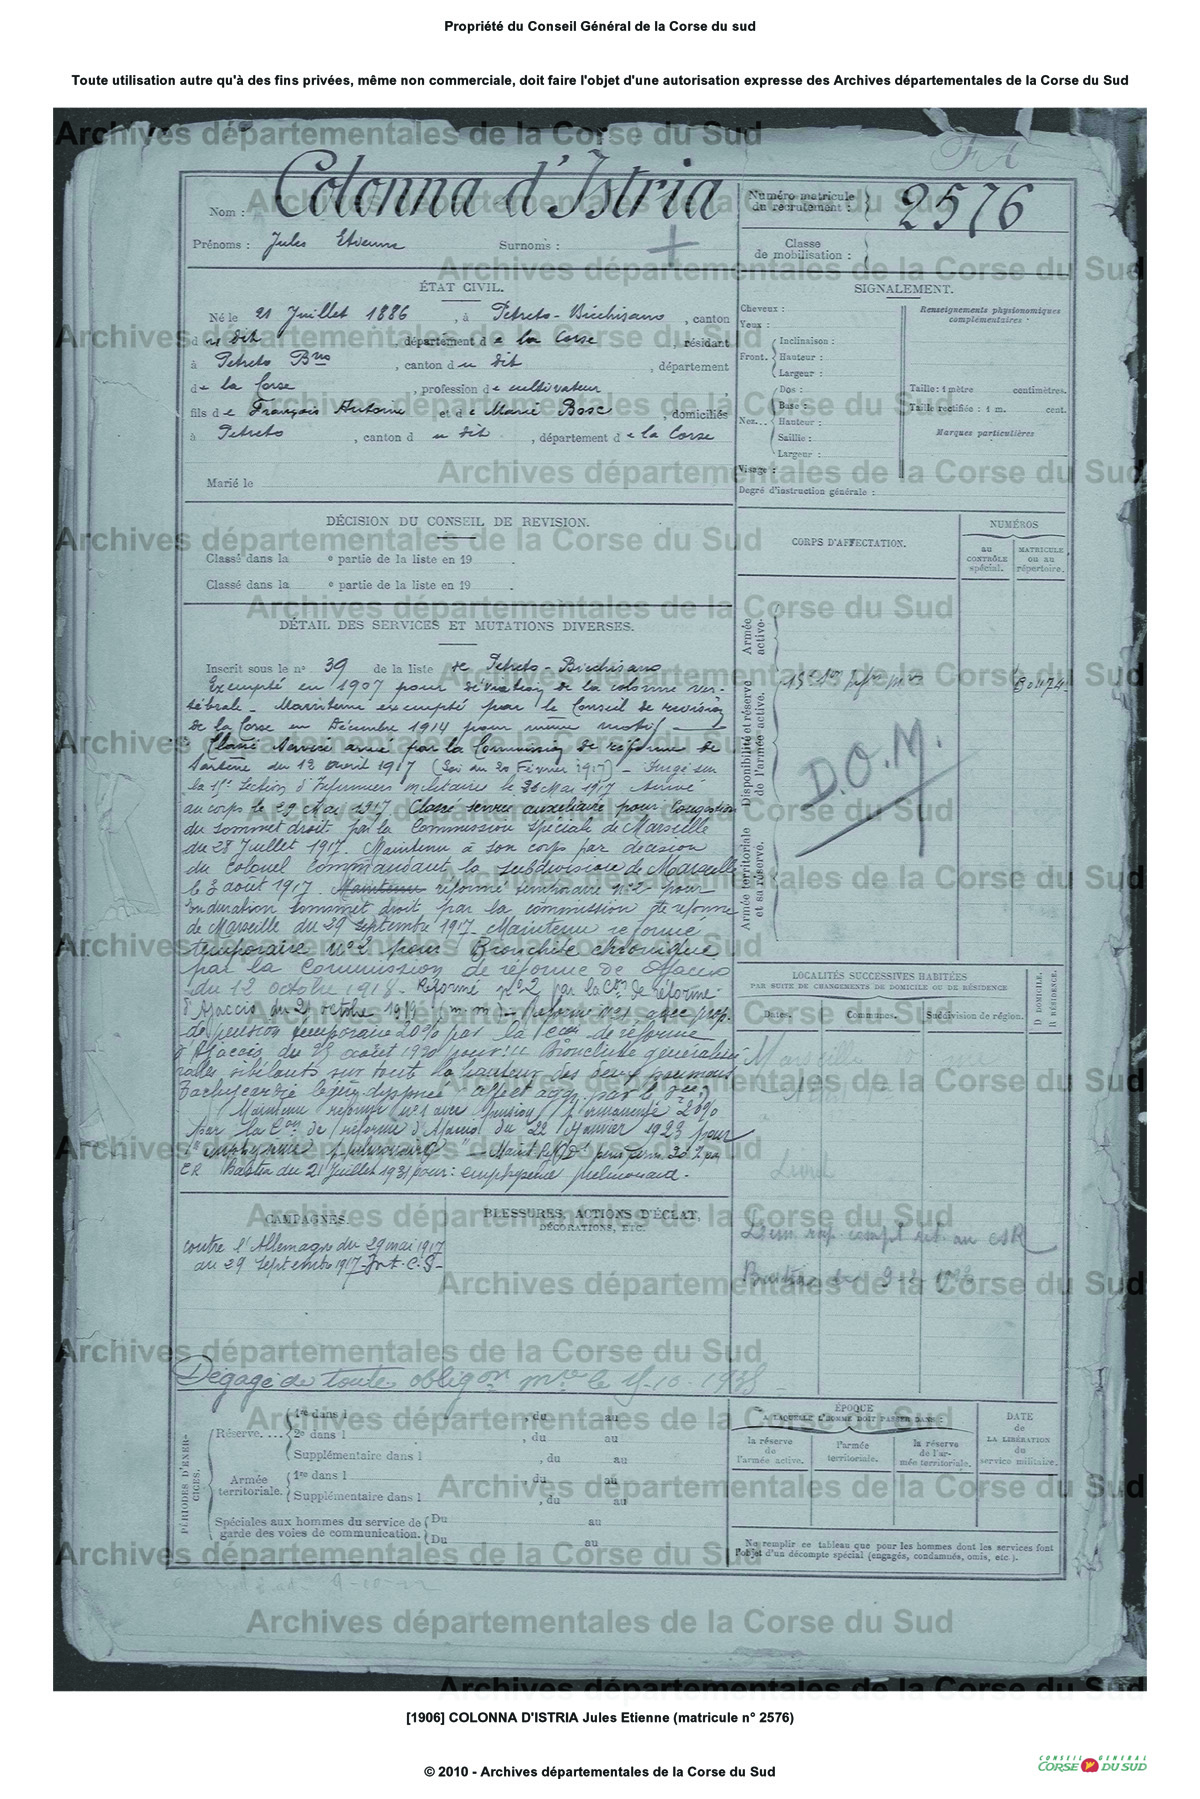 Propriété du Conseil Général de la Corse du sud
Toute utilisation autre qu'à des fins privées, même non commerciale, doit faire l'objet d'une autorisation expresse des Archives départementales de la Corse du Sud
Archives départementales de la Corse du Sud
Nom : Colonna d'Istria
Prénoms : Jules Etienne Surnoms :
Numéro matricule du recrutement : 2576
Classe de mobilisation :
ÉTAT CIVIL.
Né le 21 Juillet 1886, à Petreto-Bicchisano, canton
du dit, département de la Corse, résidant
à Petreto Bno, canton du dit, département
de la Corse, profession de cultivateur
fils de François Antoine et de Marie Bosc, domiciliés
à Petreto, canton du dit, département de la Corse
Marié le
SIGNALEMENT.
Cheveux :
Yeux :
Front. Inclinaison :
Hauteur :
Largeur :
Nez... Dos :
Base :
Hauteur :
Saillie :
Largeur :
Visage :
Degré d'instruction générale :
Renseignements physionomiques complémentaires :
Taille : 1 mètre centimètres.
Taille rectifiée : 1 m. cent.
Marques particulières
DÉCISION DU CONSEIL DE REVISION.
Classé dans la e partie de la liste en 19 .
Classé dans la e partie de la liste en 19 .
DÉTAIL DES SERVICES ET MUTATIONS DIVERSES.
Inscrit sous le n° 39 de la liste de Petreto-Bicchisano
Exempté en 1907 pour déviation de la colonne ver-
tébrale. Maintenu exempté par le Conseil de revision
de la Corse en Décembre 1914 pour même motif
Classé Service armé par la Commission de réforme de
Sartène du 12 avril 1917 (Loi du 20 Février 1917) -
la 15e Section d'Infirmiers militaire le 26 Mai 1917 Arrivé
au corps le 29 Mai 1917. Classé service auxiliaire pour
du sommet droit par la Commission spéciale de Marseille
du 28 Juillet 1917. Maintenu à son corps par décision
du Colonel Commandant la subdivision de Marseille
le 3 août 1917. Maintenu réformé temporaire n°2 pour
Induration sommet droit par la commission de reforme
de Marseille du 29 Septembre 1917. Maintenu reforme
temporaire n°2 pour Bronchite chronique
par la Commission de réforme de Ajaccio
du 12 octobre 1918. Réformé n°2 par la Con de réforme
d'Ajaccio du 21 octobre 1919 (m.m.) - Réforme n°1 avec prop.
de pension temporaire 20% par la Con de réforme
d'Ajaccio du 23 août 1920 pour : Bronchite généralisée
râles sibilants sur toute la hauteur des deux poumons
Tachycardie légère dyspnée
Maintenu réforme n°1 avec pension permanente 20%
par la Con de réforme d'Ajaccio du 22 Janvier 1923 pour
"emphysème pulmonaire"
CR Bastia du 21 Juillet 1931 pour : emphysème pulmonaire.
CORPS D'AFFECTATION.
NUMÉROS
au CONTRÔLE spécial.
MATRICULE ou au répertoire.
Armée active.
Disponibilité et réserve de l'armée active.
Armée territoriale et sa réserve.
D.O.M.
LOCALITÉS SUCCESSIVES HABITÉES
PAR SUITE DE CHANGEMENTS DE DOMICILE OU DE RÉSIDENCE
Dates. Communes. Subdivision de région. D DOMICILE. R RÉSIDENCE.
Marseille
Livret
CAMPAGNES.
contre l'Allemagne du 29 mai 1917
au 29 Septembre 1917
BLESSURES, ACTIONS D'ÉCLAT,
DÉCORATIONS, ETC.
Dégagé de toutes obligon mre le 15-10-1938
PÉRIODES D'EXERCICES.
Réserve.... 1re dans l , du au
2e dans l , du au
Supplémentaire dans l , du au
Armée territoriale. 1re dans l , du au
Supplémentaire dans l , du au
Spéciales aux hommes du service de garde des voies de communication. Du au
Du au
ÉPOQUE
A LAQUELLE L'HOMME DOIT PASSER DANS :
la réserve de l'armée active.
l'armée territoriale.
la réserve de l'armée territoriale.
DATE de LA LIBÉRATION du service militaire.
Ne remplir ce tableau que pour les hommes dont les services font l'objet d'un décompte spécial (engagés, condamnés, omis, etc.).
[1906] COLONNA D'ISTRIA Jules Etienne (matricule n° 2576)
© 2010 - Archives départementales de la Corse du Sud
CONSEIL GÉNÉRAL
CORSE DU SUD